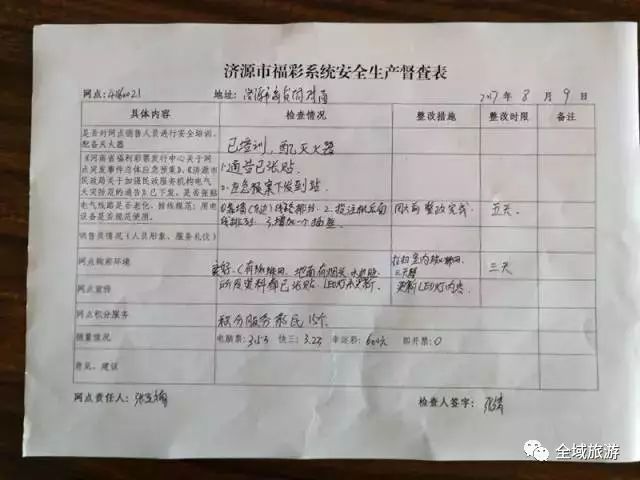 济源市福彩系统安全生产督查表
网点: 地址: 济源市 2017年8月9日
具体内容 检查情况 整改措施 整改时限 备注
是否对网点销售人员进行安全培训、
配备灭火器
已培训,配灭火器
《河南省福利彩票发行中心关于网
点突发事件总体应急预案》、《济源市
民政局关于加强民政服务机构电气
火灾防范的通告》已下发、是否张贴
1.通告已张贴
2.应急预案下发到站
电气线路是否老化、接线规范;用电
设备是否规范使用
2.投注机后面
3.增加一个插座
周六前整改完成
五天
销售员情况(人员形象、服务礼仪)
网点购彩环境
地面有烟头
三天
网点宣传
所有资料都已张贴 LED灯未更新
更新LED灯内容
网点积分服务
积分服务彩民15个
销量情况
电脑票:353 快三:323 幸运彩:600元 即开票:0
意见、建议
网点责任人: 检查人签字:
全域旅游